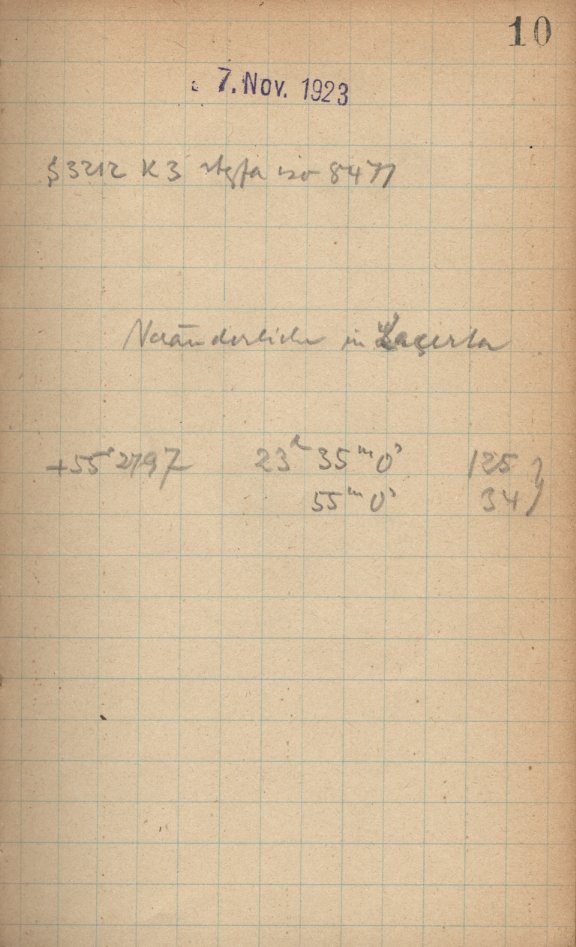 10
7. Nov. 1923
K 3
Veränderliche in Lacerta
+55° 2797 23h 35m 0s 125
55m 0s 34